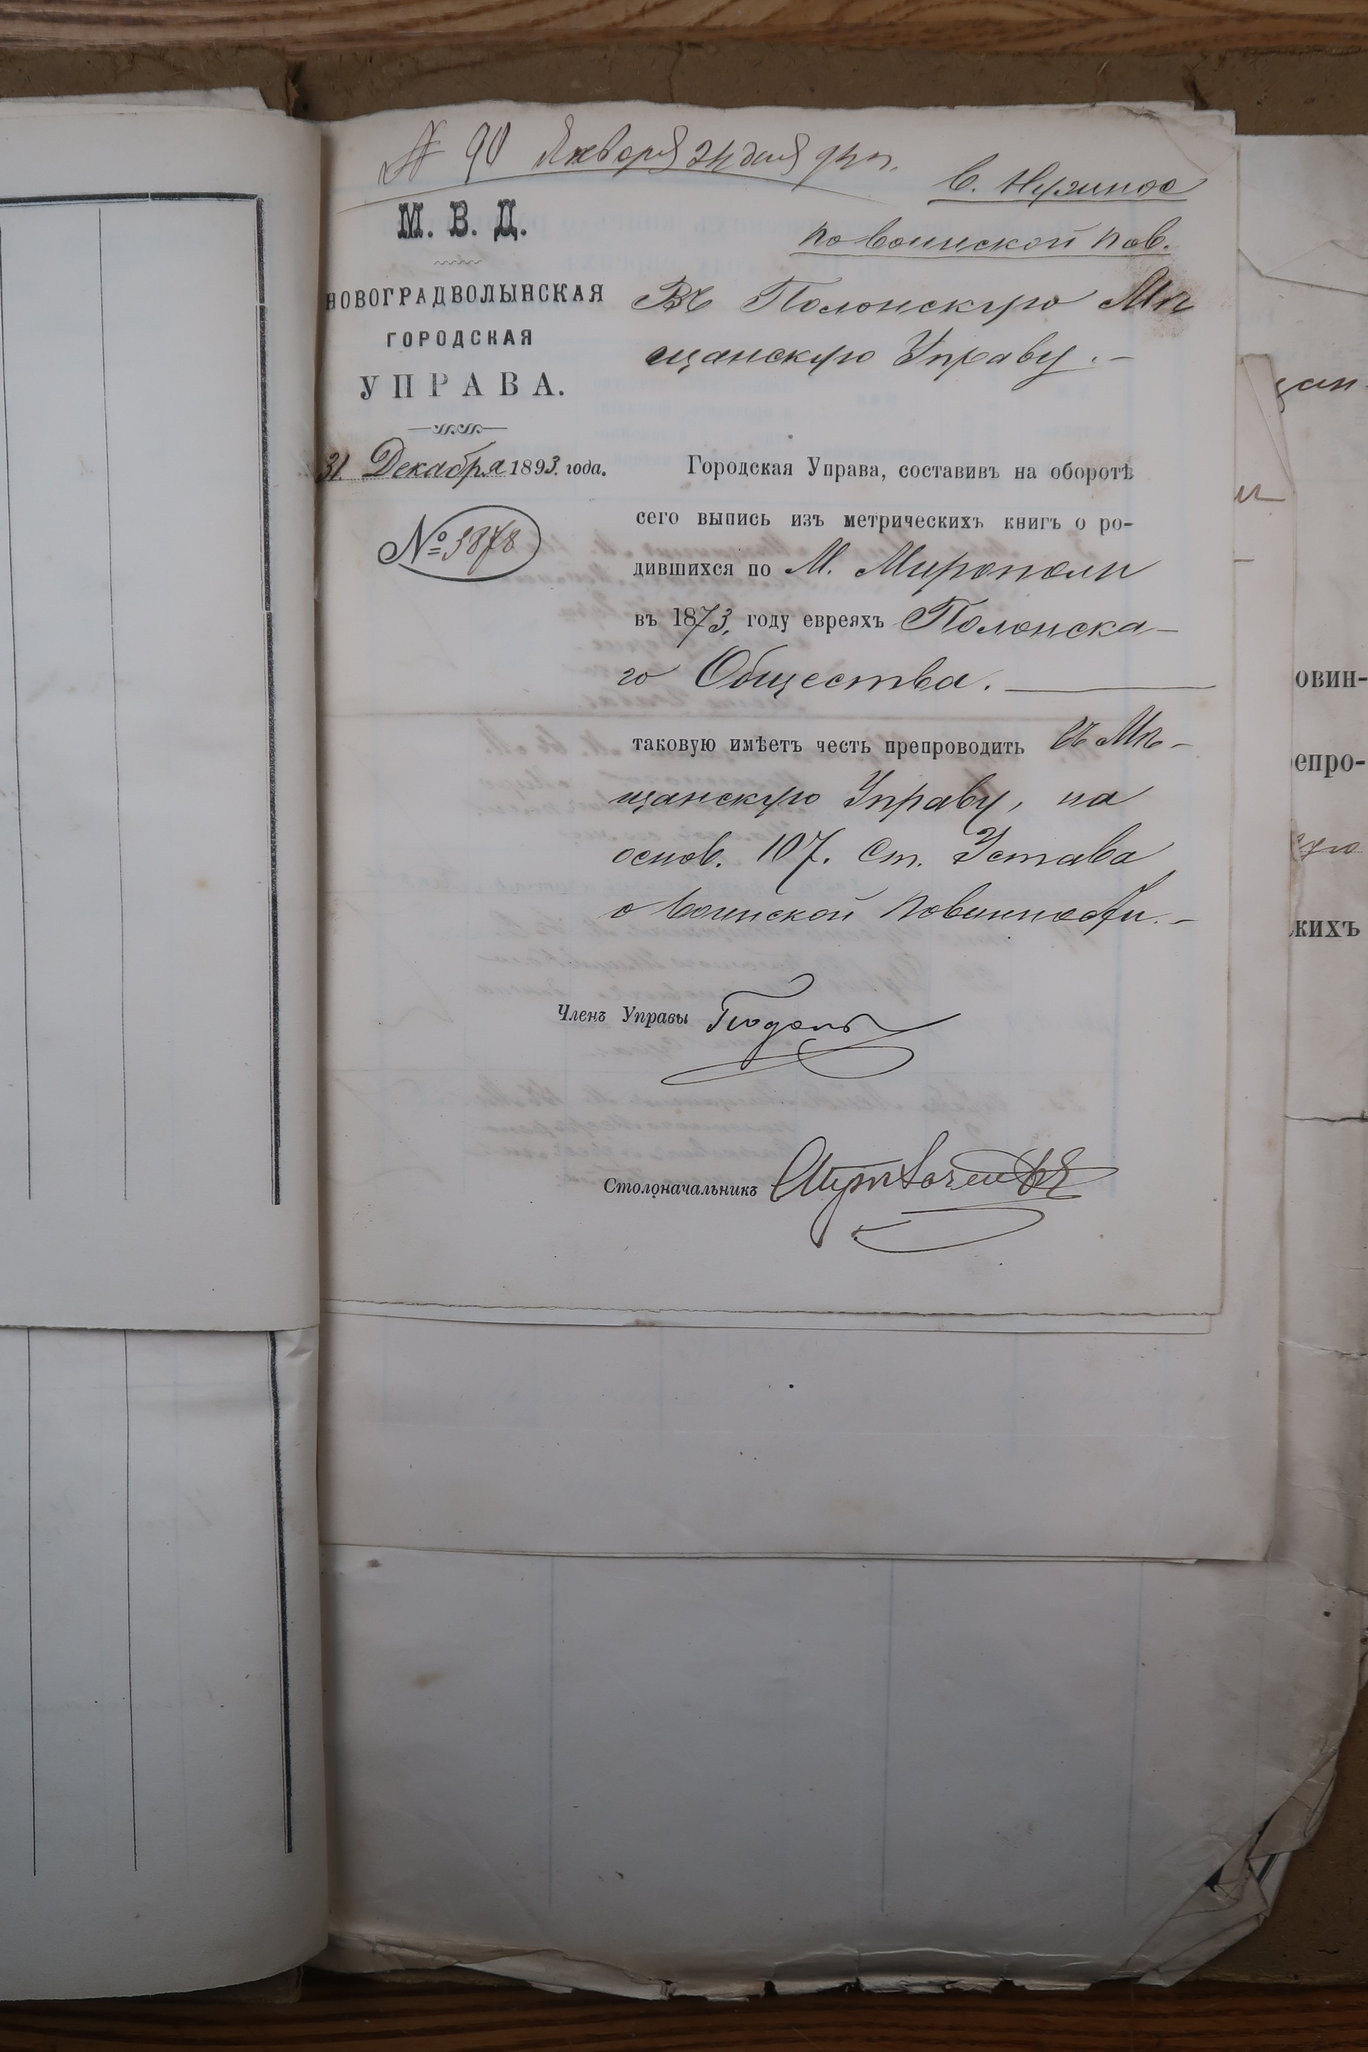 № 90 Января 24 дня 94 г.
С. Нужное
по воинской пов.
М. В. Д.
НОВОГРАДВОЛЫНСКАЯ
ГОРОДСКАЯ
УПРАВА.
31. Декабря 1893. года.
№ 3878
Въ Полонскую Мѣ
щанскую Управу. —
Городская Управа, составивъ на оборотѣ
сего выпись изъ метрическихъ книгъ о ро-
дившихся по М. Мирополи
въ 1873, году евреяхъ Полонска-
го Общества. —
таковую имѣетъ честь препроводить въ Мѣ-
щанскую Управу, на
основ. 107. ст. Устава
о воинской повинности. —
Членъ Управы
Столоначальникъ
щан-
овин-
епро-
скую
кихъ